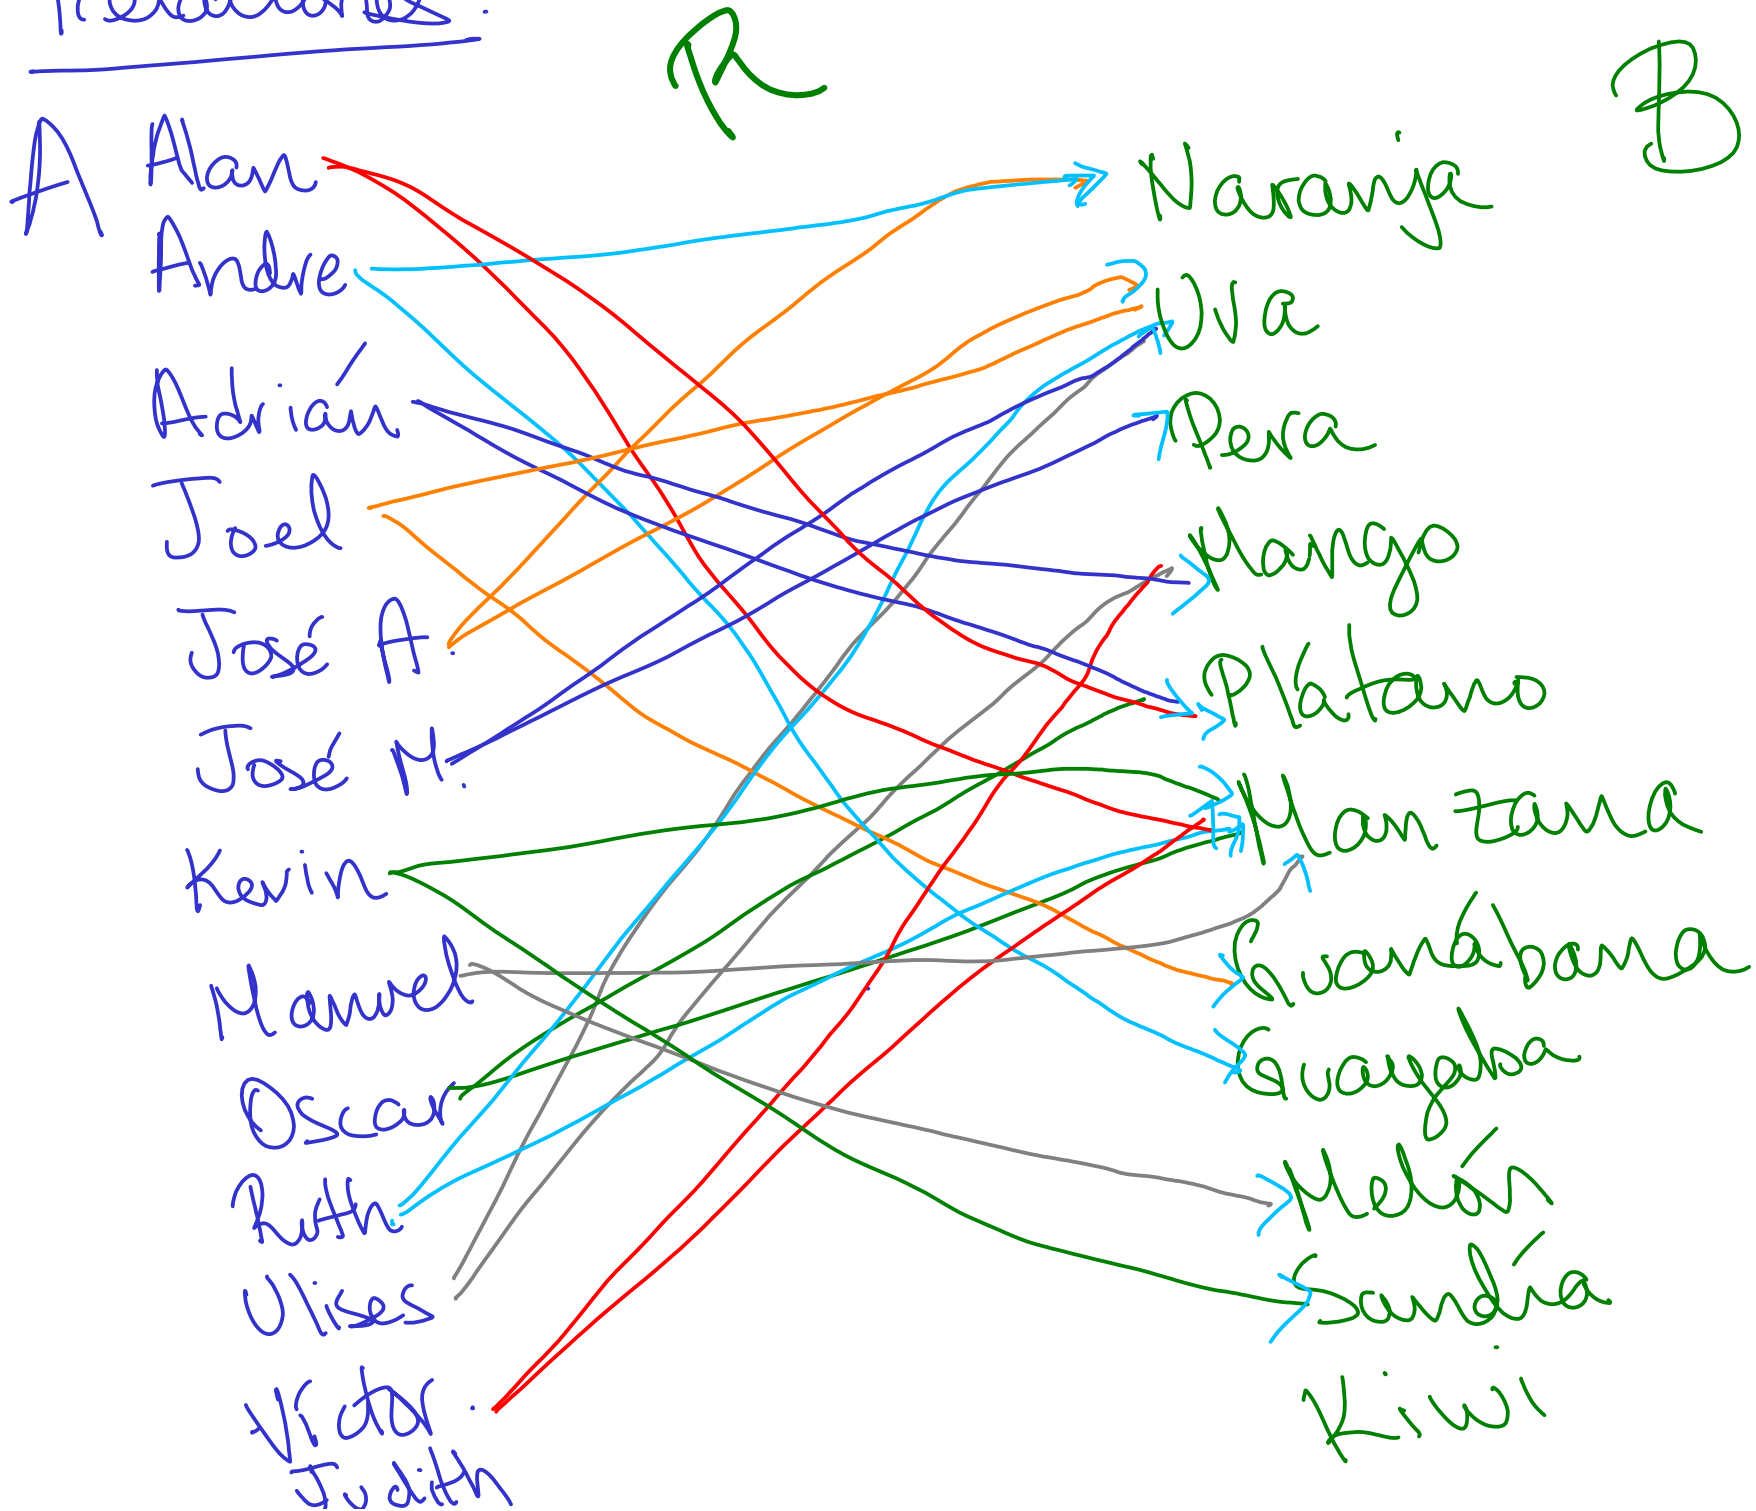 Relaciones.
R
B
A
Alan
Andre
Adrián
Joel
José A.
José M.
Kevin
Manuel
Oscar
Ruth
Ulises
Víctor.
Judith
Naranja
Uva
Pera
Mango
Plátano
Manzana
Guanábana
Guayaba
Melón
Sandía
Kiwi